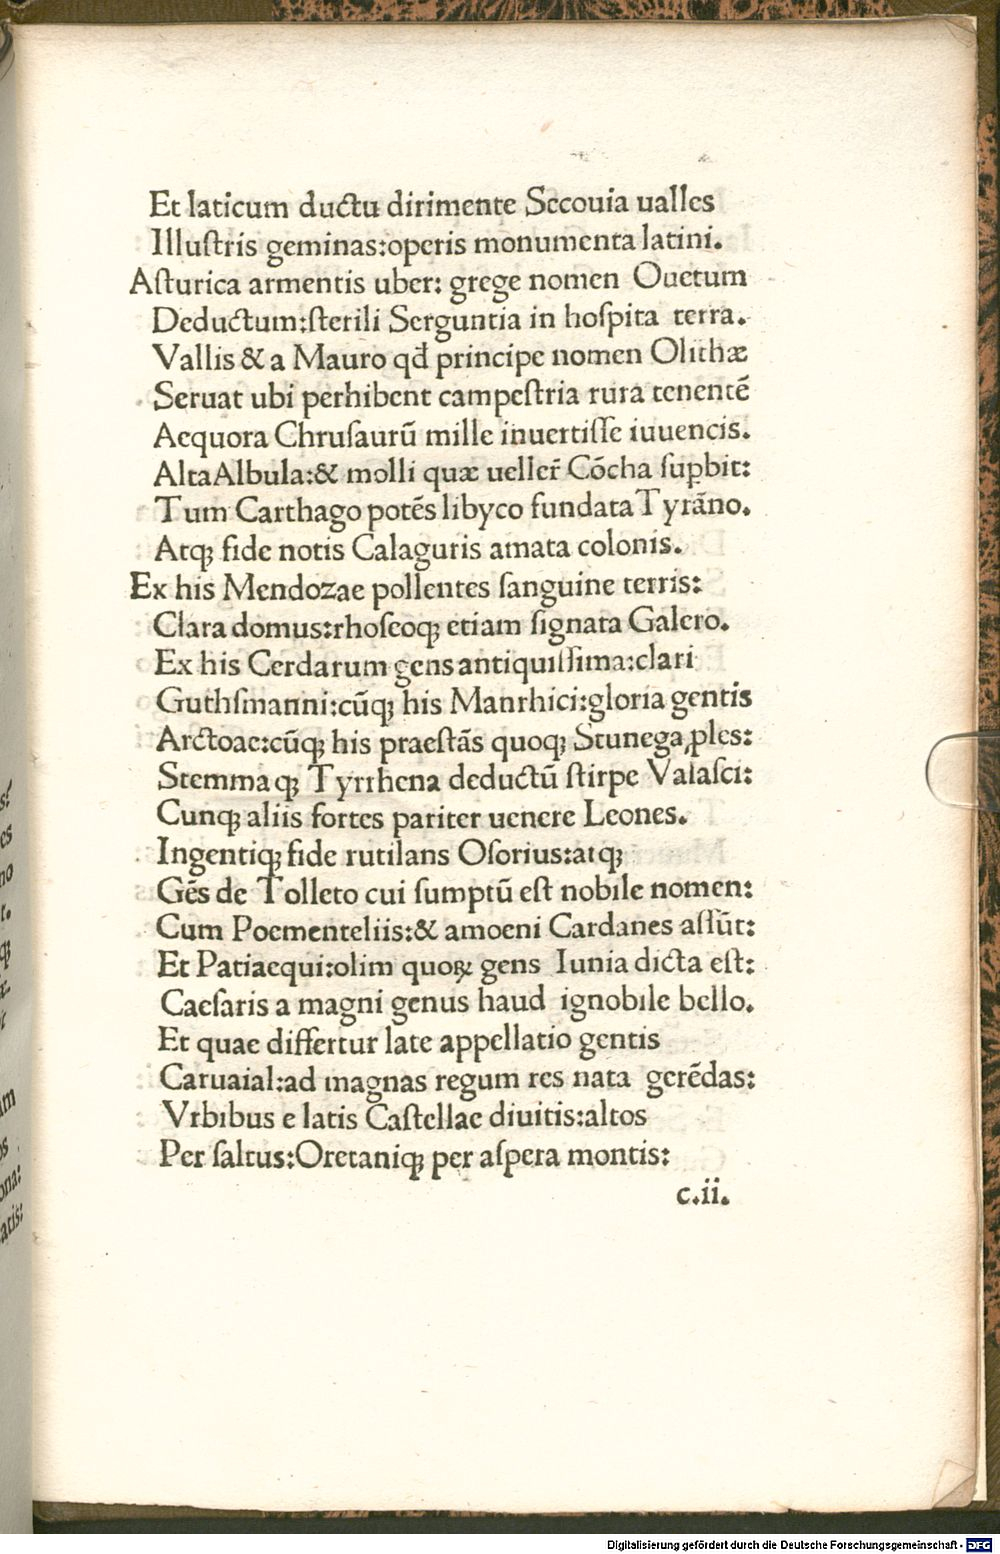 Et laticum ductu dirimente Secouia ualles
Illuſtris geminas:operis monumenta latini.
Aſturica armentis uber: grege nomen Ouetum
Deductum:ſterili Serguntia in hoſpita terra.
Vallis & a Mauro qđ principe nomen Olithæ
Seruat ubi perhibent campeſtria rura tenentē
Aequora Chruſaurū mille inuertiſſe iuuencis.
Alta Albula:& molli quæ uellerͤ Cōcha ſuꝑbit:
Tum Carthago potēs libyco fundata Tyrāno.
Atqꝫ fide notis Calaguris amata colonis.
Ex his Mendozae pollentes ſanguine terris:
Clara domus:rhoſeoqꝫ etiam ſignata Galero.
Ex his Cerdarum gens antiquiſſima:clari
Guthſmanni:cūqꝫ his Manrhici:gloria gentis
Arctoae:cūqꝫ his praeſtās quoqꝫ Stunega ꝓles:
Stemmaqꝫ Tyrrhena deductū ſtirpe Valaſci:
Cunqꝫ aliis fortes pariter uenere Leones.
Ingentiqꝫ fide rutilans Oſorius:atqꝫ
Gēs de Tolleto cui ſumptū eſt nobile nomen:
Cum Poementeliis:& amoeni Cardanes aſſūt:
Et Patiaequi:olim quoꝝ gens Iunia dicta eſt:
Caeſaris a magni genus haud ignobile bello.
Et quae differtur late appellatio gentis
Caruaial:ad magnas regum res nata gerēdas:
Vrbibus e latis Caſtellae diuitis:altos
Per ſaltus:Oretaniqꝫ per aſpera montis:
c.ii.
Digitalisierung gefördert durch die Deutsche Forschungsgemeinschaft - DFG